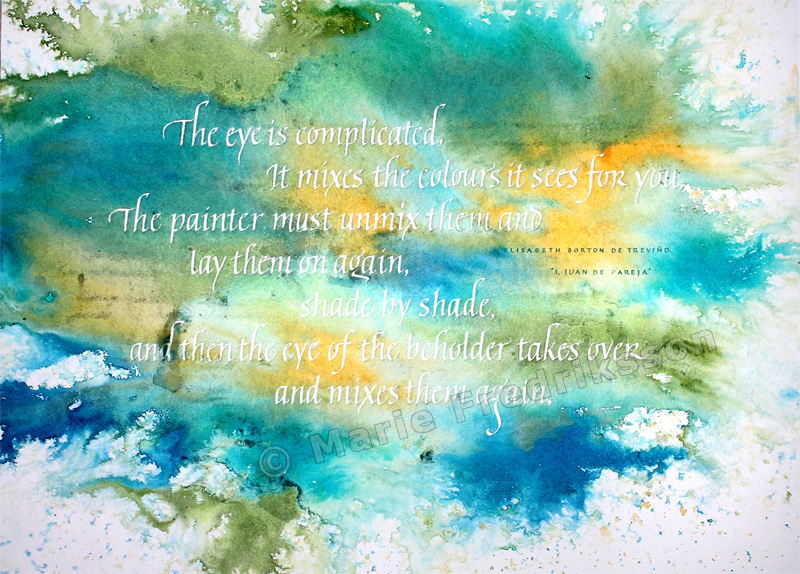 The eye is complicated.
It mixes the colours it sees for you,
The painter must unmix them and
lay them on again,
shade by shade,
and then the eye of the beholder takes over
and mixes them again.
ELISABETH BORTON DE TREVIÑO
"I, JUAN DE PAREJA"
© Marie Fredriksson